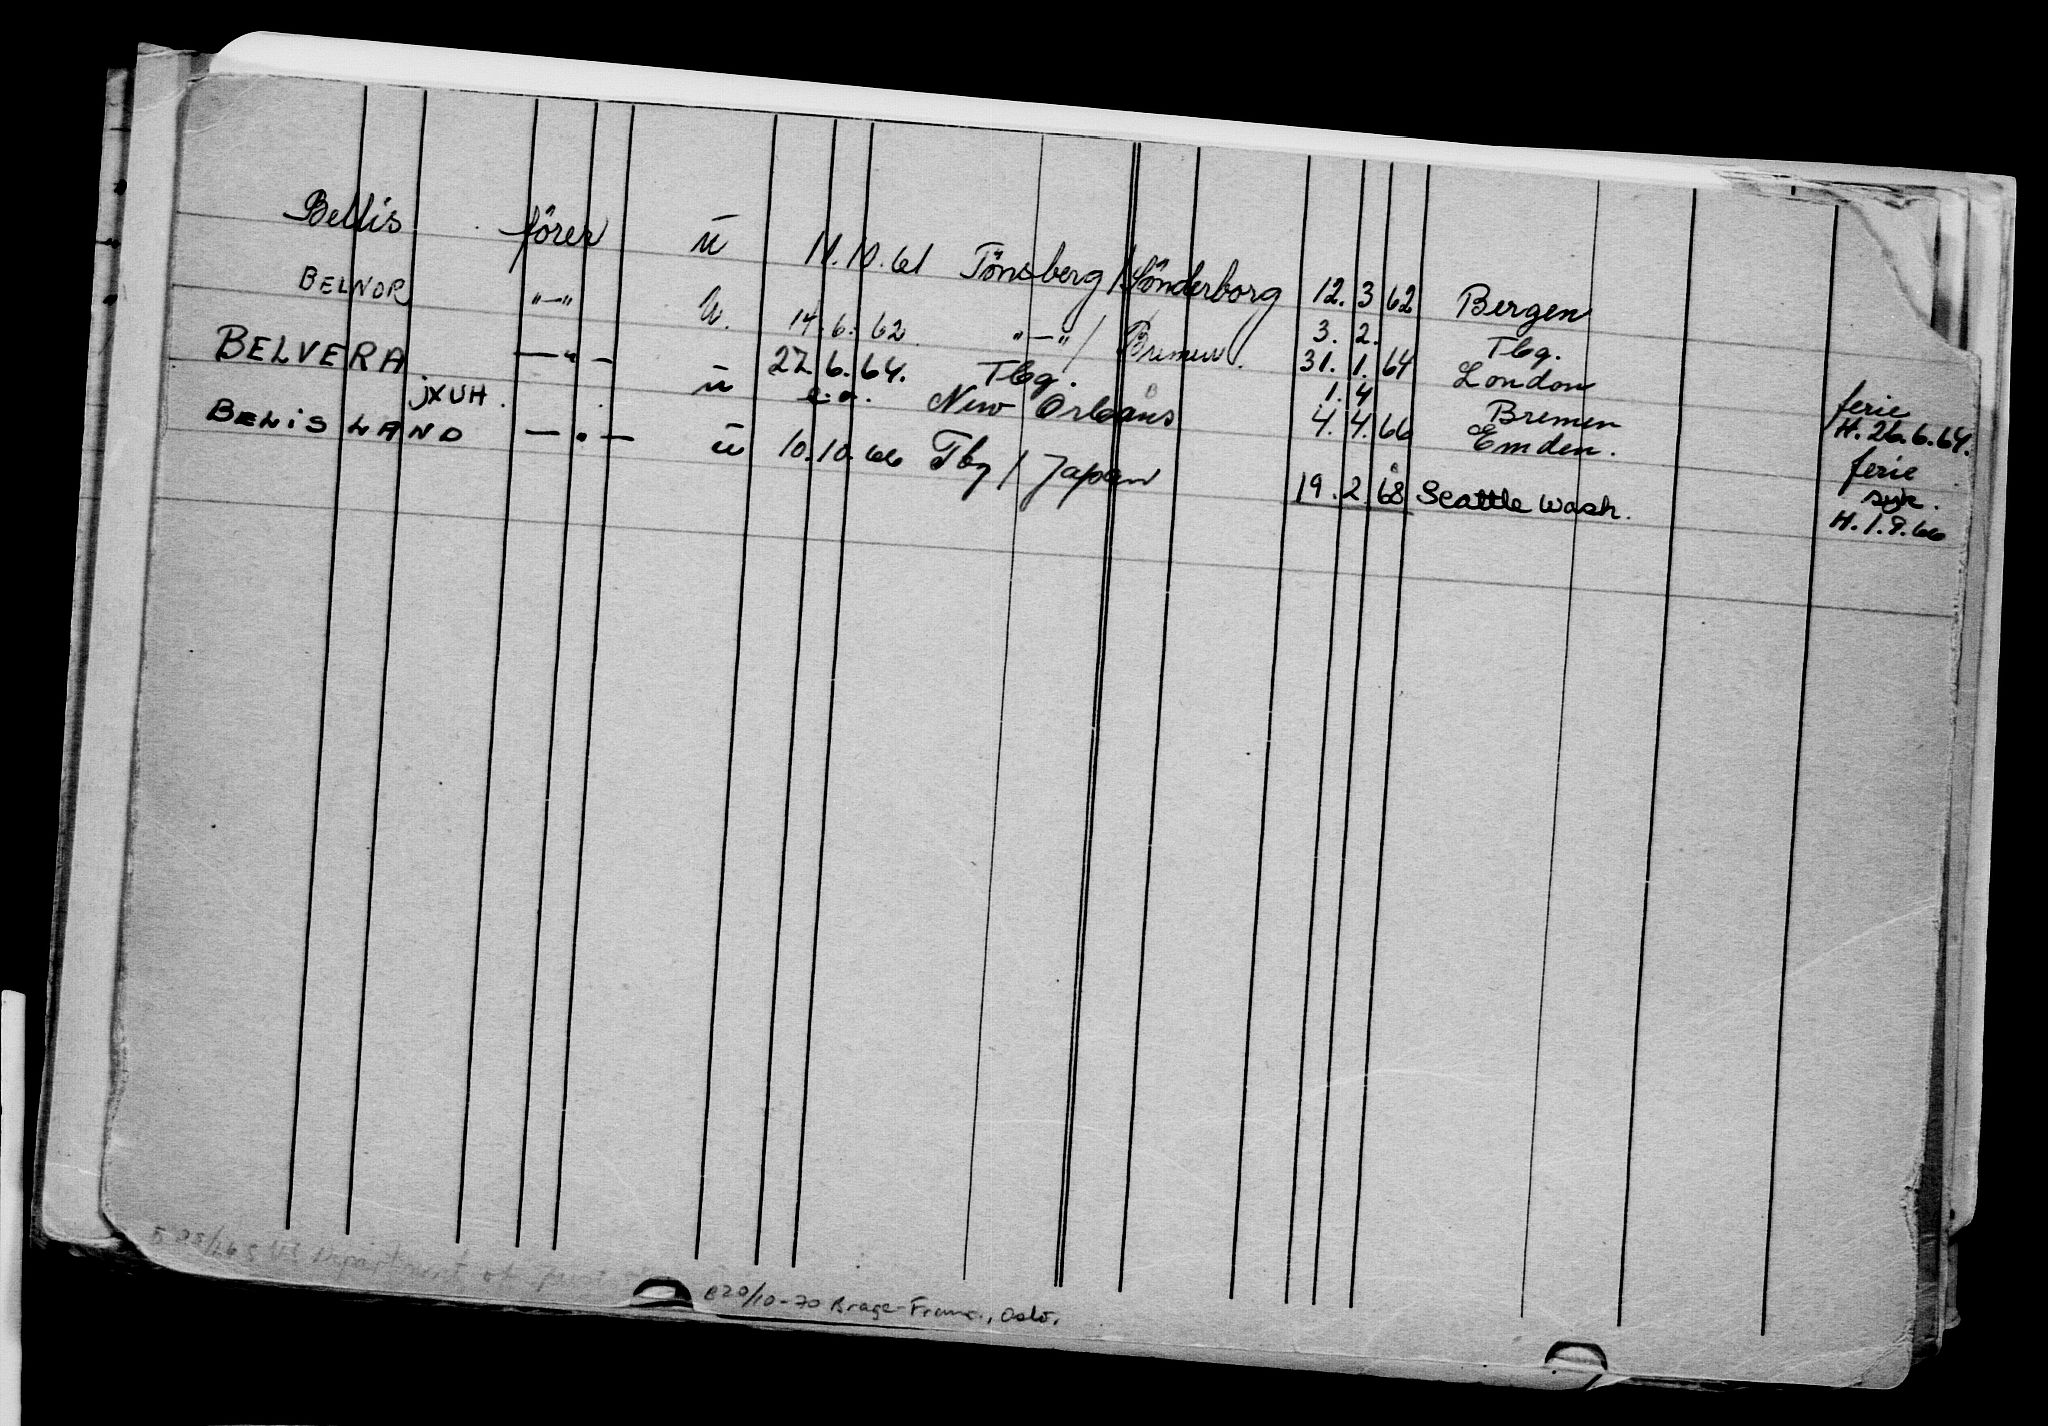 Bellis förer u 11.10.61 Tönsberg/Sönderborg 12.3.62 Bergen
BELNOR "—" u. 14.6.62. "—"/Bremen. 3.2. Tbg.
BELVERA —"— 27.6.64. Tbg. 31.1.64 London ferie
JXUH. u e.o. New Orleans 1.4 Bremen H. 26.6.64.
BELiSLAND —"— u 10.10.66 Tbg/Japan 4.4.66 Emden. ferie
19.2.68 Seattle Wash. syk.
H.1.9.66
Department of
E20/10-70 Brage-Fram., Oslo.